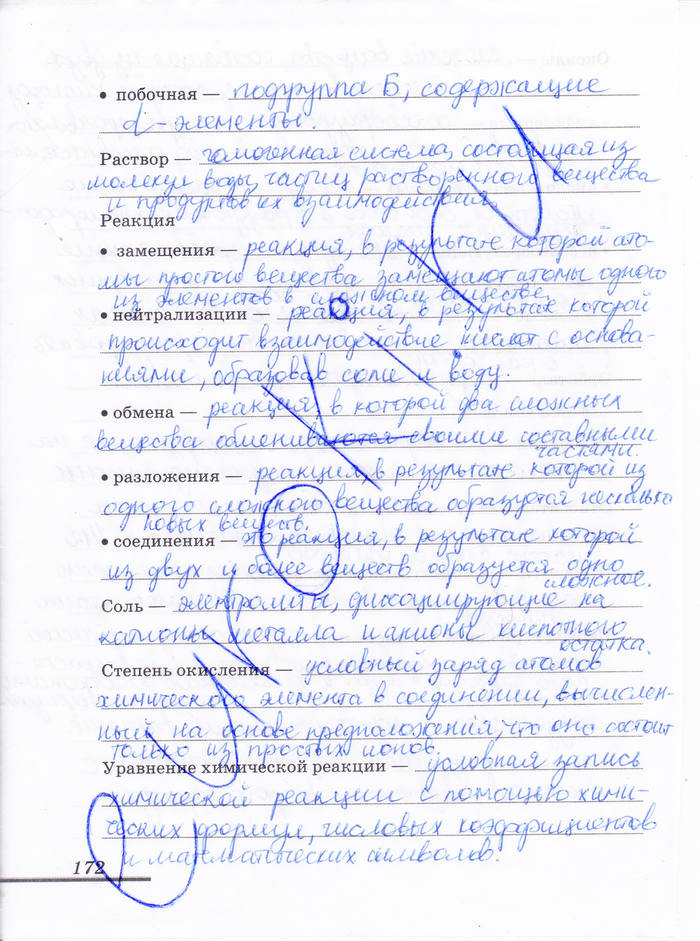 • побочная — подгруппа Б, содержащие
d-элементы.
Раствор — гомогенная система, состоящая из
молекул воды, частиц растворенного вещества
и продуктов их взаимодействия.
Реакция
• замещения — реакция, в результате которой ато-
мы простого вещества замещают атомы одного
из элементов в сложном веществе.
• нейтрализации — реакция, в результате которой
происходит взаимодействие кислот с основа-
ниями, образовав соли и воду.
• обмена — реакция, в которой два сложных
вещества обмениваются своими составными
частями.
• разложения — реакция, в результате которой из
одного сложного вещества образуется несколько
новых веществ.
• соединения — это реакция, в результате которой
из двух и более веществ образуется одно
сложное.
Соль — электролиты, диссоциирующие на
катионы металла и анионы кислотного
остатка.
Степень окисления — условный заряд атомов
химического элемента в соединении, вычислен-
ный на основе предположения, что оно состоит
только из простых ионов.
Уравнение химической реакции — условная запись
химической реакции с помощью хими-
ческих формул, числовых коэффициентов
и математических символов.
172